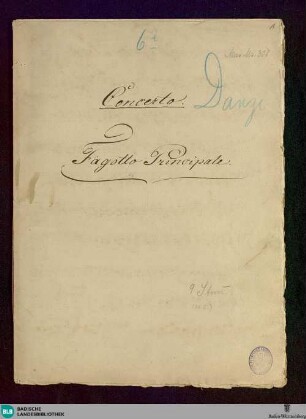 6
Mus. Hs. 207
Concerto.
Danzi
Fagotto Principale.
9 Stim̄
BLB BADISCHE
LANDESBIBLIOTHEK
Baden-Württemberg